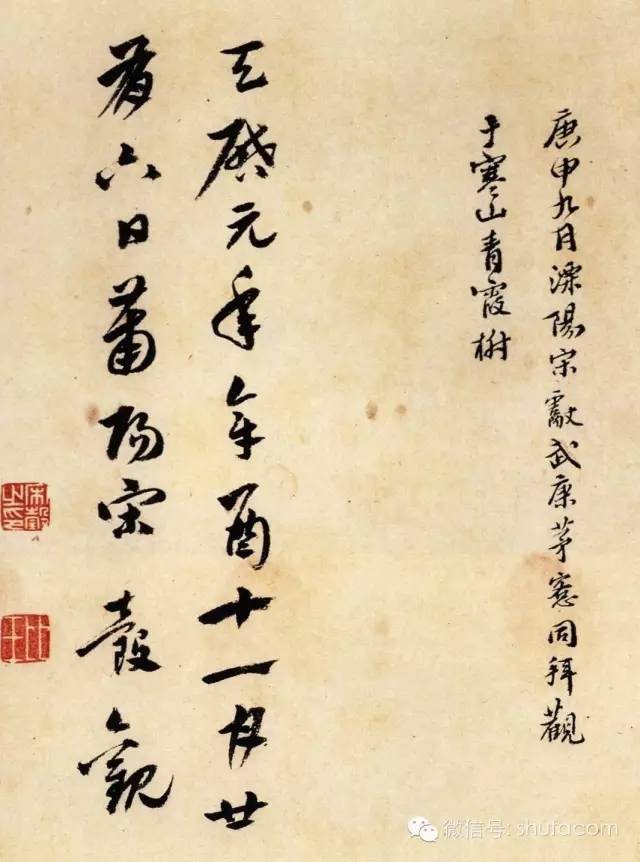 庚申九月溧陽宋獻武康茅窓同拜觀
于寒山青霞榭
天啟元年辛酉十一月廿
有六日莆陽宋瑴觀
宋瑴之印
比玉
微信号: shufacom